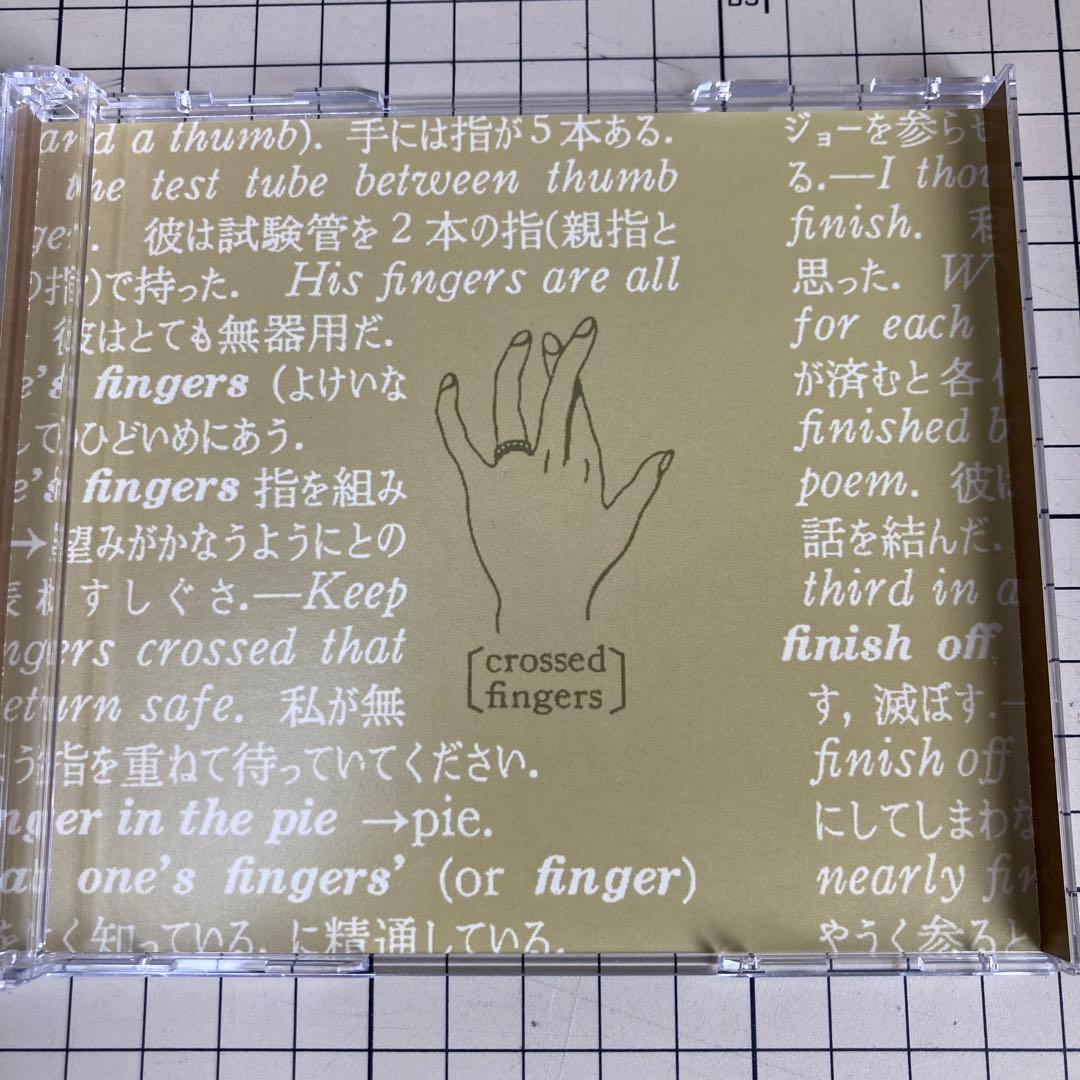 and a thumb). 手には指が5本ある.
the test tube between thumb
彼は試験管を2本の指(親指と
の指)で持った. His fingers are all
彼はとても無器用だ.
fingers (よけいな
してひどいめにあう.
fingers 指を組み
→望みがかなうようにとの
表わすしぐさ.—Keep
fingers crossed that
return safe. 私が無
よう指を重ねて待っていてください.
finger in the pie →pie.
at one's fingers' (or finger)
をよく知っている, に精通している.
[crossed
fingers]
ジョーを参らせ
る.—I
finish.
思った.
for each
が済むと各
finished
poem. 彼は
話を結んだ.
third in
finish off
す, 滅ぼす.—
finish off
にしてしまわな
nearly
やうく参ると